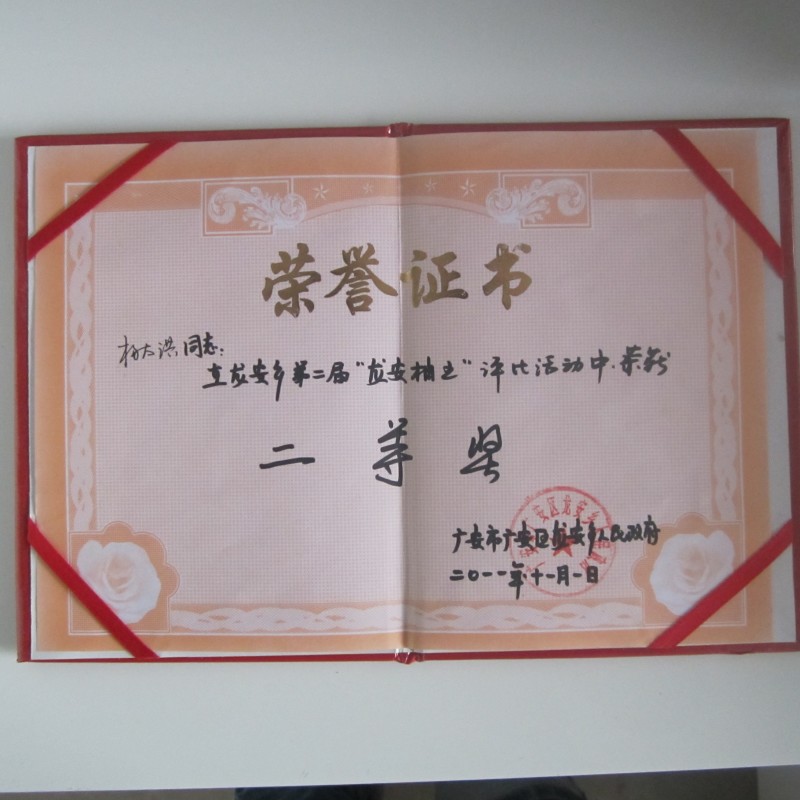 荣誉证书
杨大洪同志：
在龙安乡第二届"龙安柚王"评比活动中，荣获
二等奖
广安市广安区龙安乡人民政府
二〇一一年十一月一日